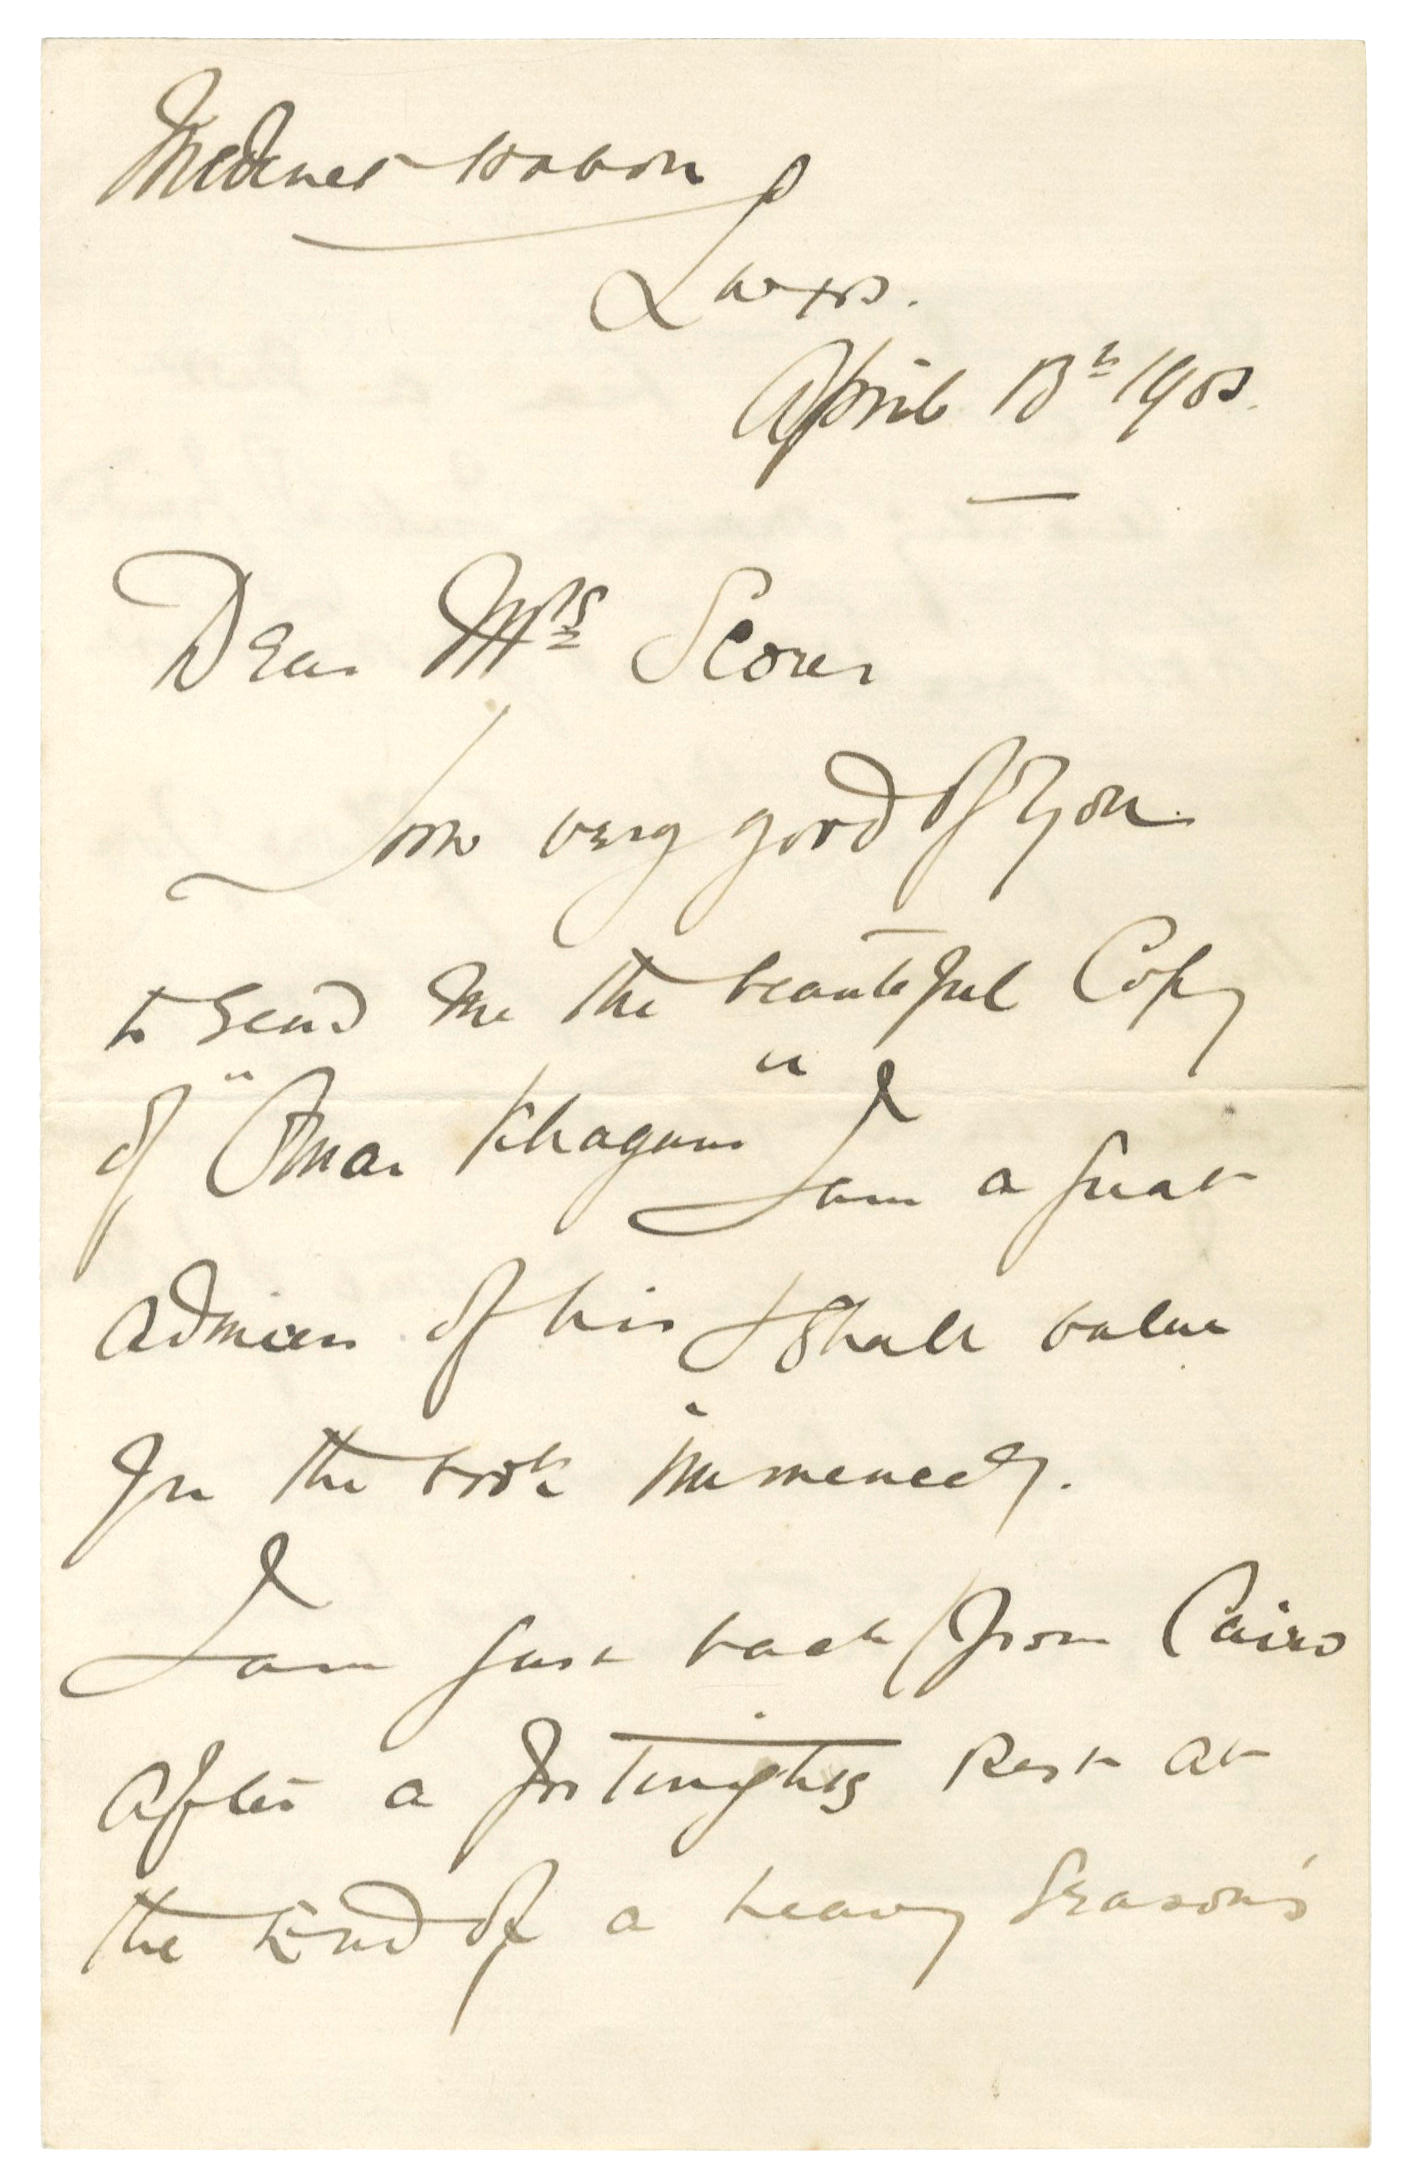 Medinet Habou
Luxor.
April 13th 190
Dear Mrs Scorer
How very good of you
to send me the beautiful Copy
of "Omar Khayam" I am a great
admirer of his & shall value
the book immensely.
I am just back from Cairo
after a fortnights rest at
the End of a heavy Season's